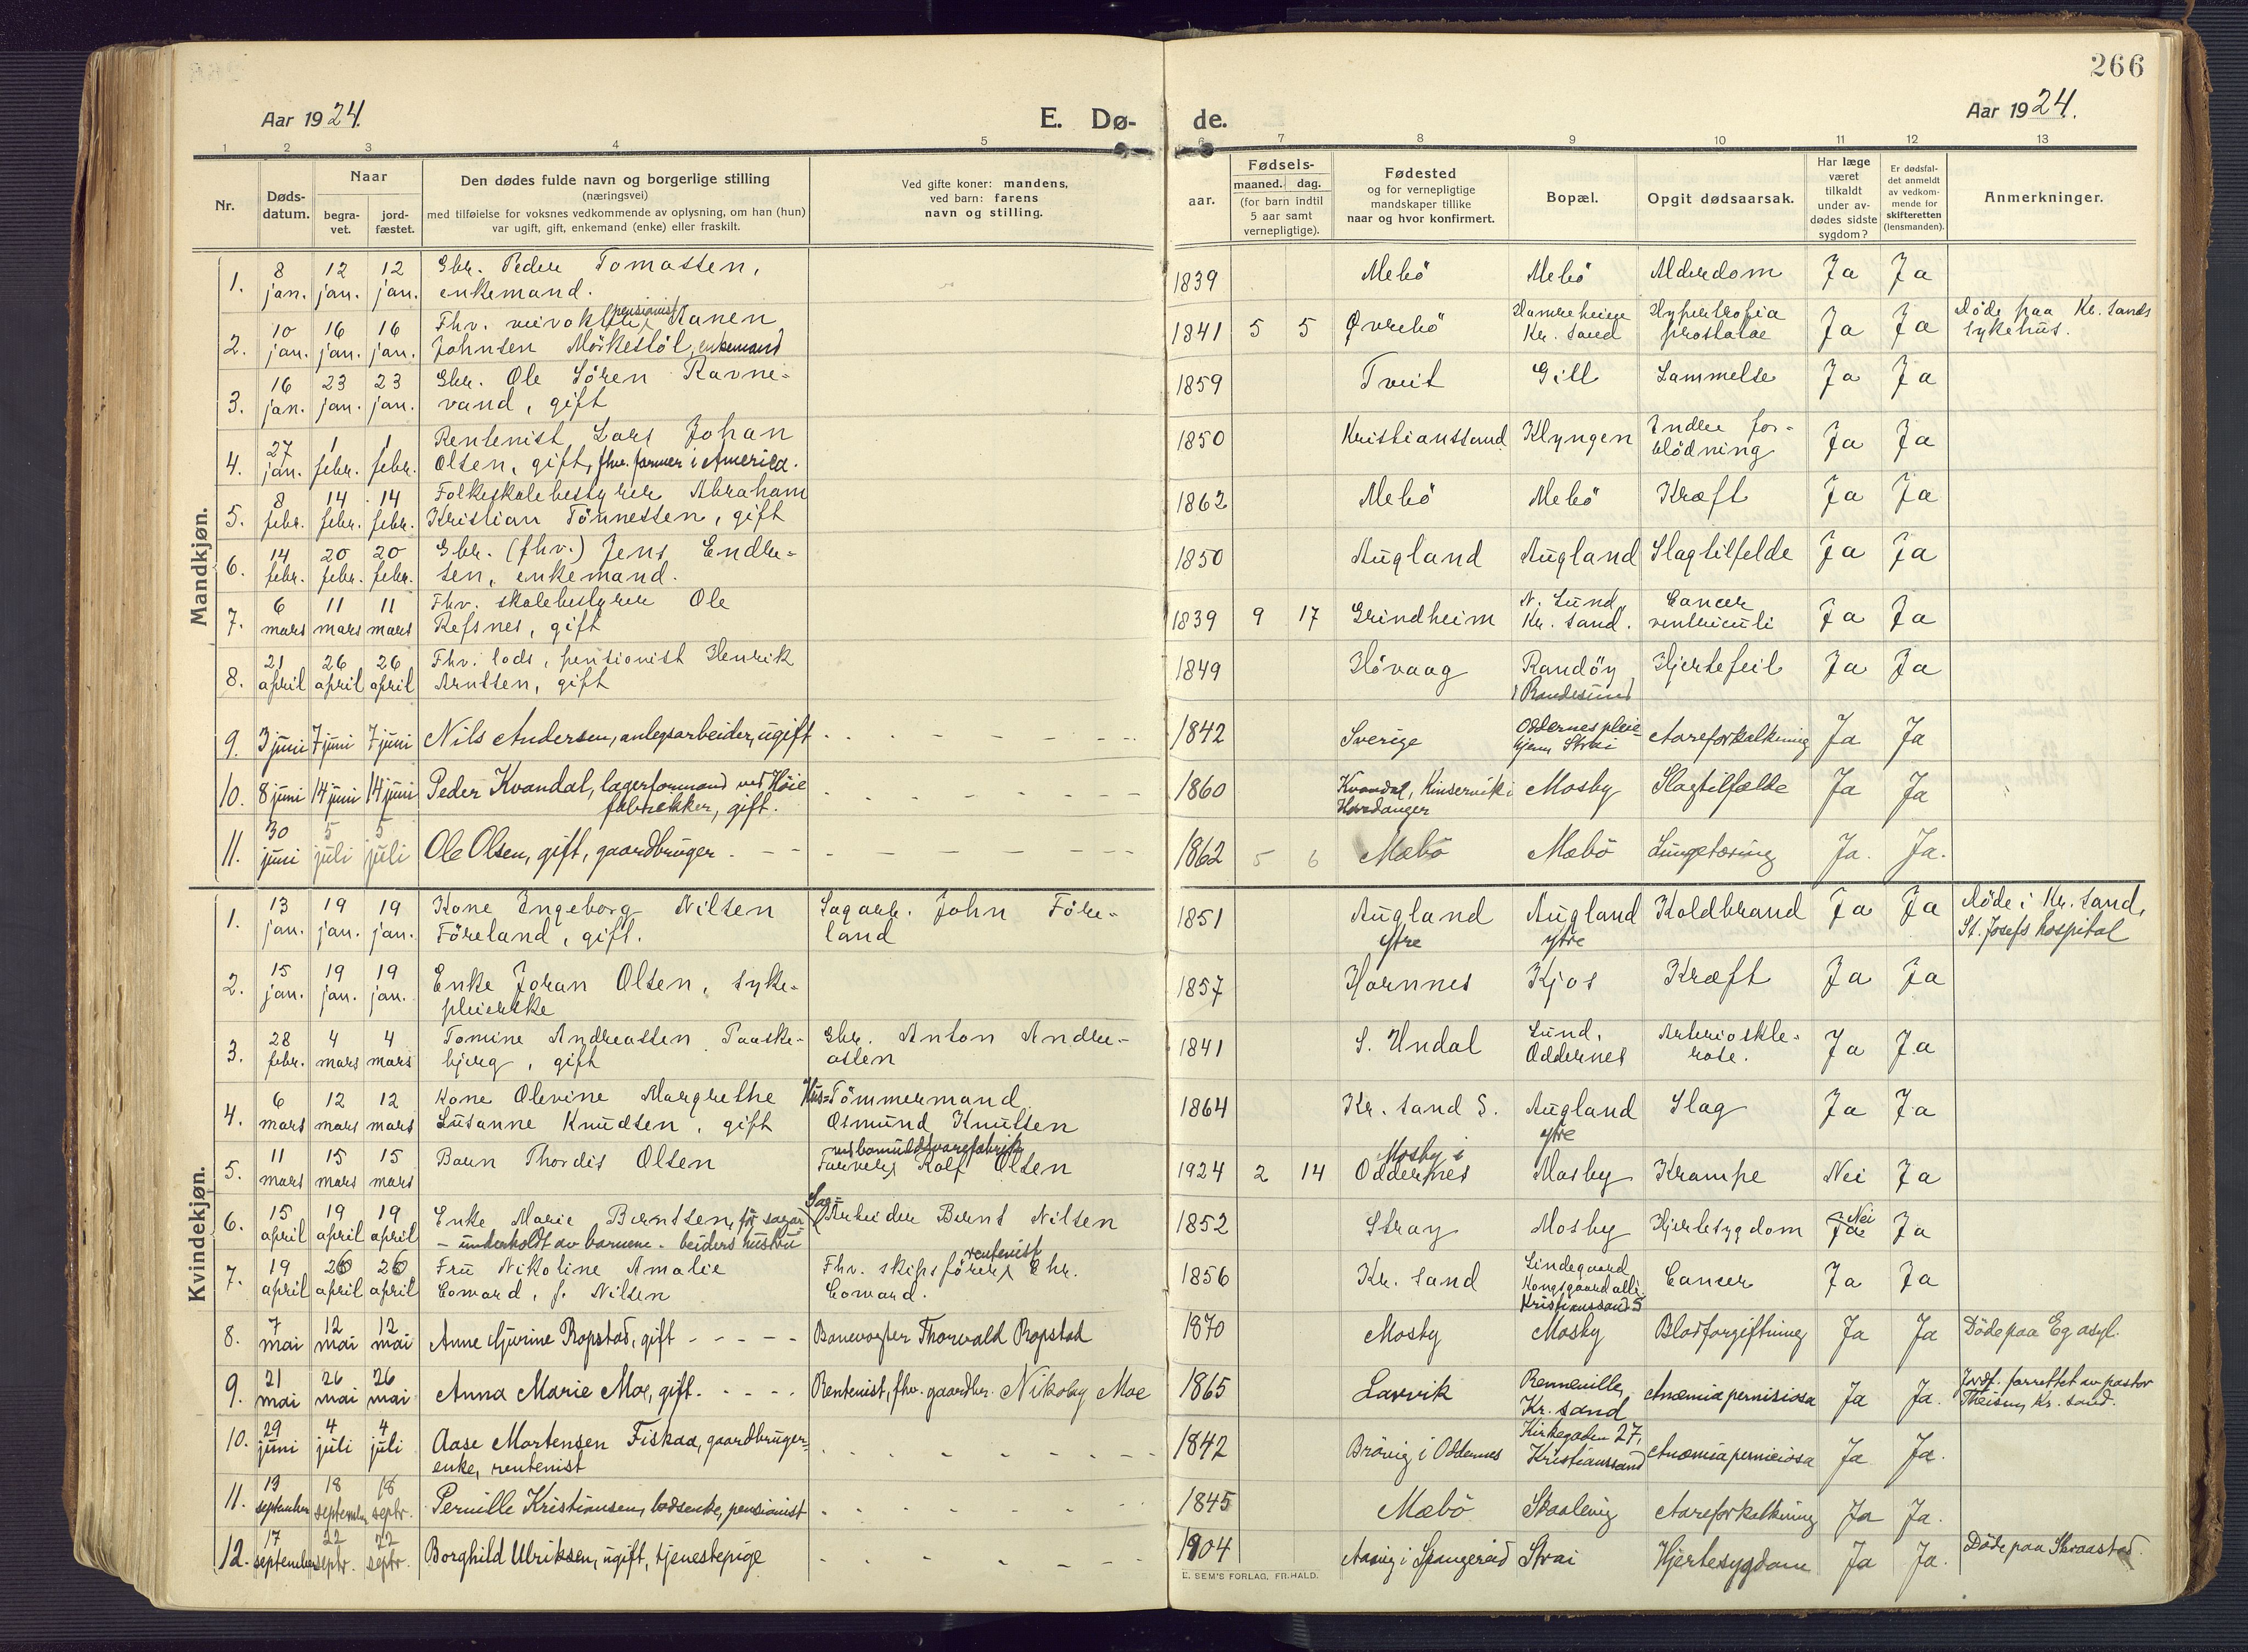 266
Aar 1924.
E. Dø-
de.
Aar 1924.
1 2 3 4 5 6 7 8 9 10 11 12 13
Nr.
Døds-
datum.
Naar
begra-
vet.
jord-
fæstet.
Den dødes fulde navn og borgerlige stilling
(næringsvei)
med tilføielse for voksnes vedkommende av oplysning, om han (hun)
var ugift, gift, enkemand (enke) eller fraskilt.
Ved gifte koner: mandens,
ved barn: farens
navn og stilling.
aar.
Fødsels-
maaned. dag.
(for barn indtil
5 aar samt
vernepligtige).
Fødested
og for vernepligtige
mandskaper tillike
naar og hvor konfirmert.
Bopæl.
Opgit dødsaarsak.
Har læge
været
tilkaldt
under av-
dødes sidste
sygdom?
Er dødsfal-
det anmeldt
av vedkom-
mende for
skifteretten
(lensmanden).
Anmerkninger.
Mandkjøn.
1. 8 jan. 12 jan. 12 jan. Gbr. Peder Tomassen,
enkemand. 1839 Mebö Mebö Alderdom Ja Ja
2. 10 jan. 16 jan. 16 jan. Fhv. veivokter, pensionist Kanen
Johnsen Mörkestöl, enkemand 1841 5 5 Øvrebö Hamreheien
Kr. sand Hypertrofia
prostatae Ja Ja Døde paa Kr. sands
sykehus.
3. 16 jan. 23 jan. 23 jan. Gbr. Ole Sören Ravne-
vand, gift 1859 Tveit Gill Lammelse Ja Ja
4. 27 jan. 1 febr. 1 febr. Rentenist Lars Johan
Olsen, gift, fhv. farmer i America. 1850 Kristianssand Klyngen Indre for-
blödning Ja Ja
5. 8 febr. 14 febr. 14 febr. Folkeskolebestyrer Abraham
Kristian Tönnessen, gift 1862 Mebö Mebö Kræft Ja Ja
6. 14 febr. 20 febr. 20 febr. Gbr. (fhv.) Jens Endre-
sen, enkemand. 1850 Augland Augland Slagtilfelde Ja Ja
7. 6 mars 11 mars 11 mars Fhv. skolebestyrer Ole
Refsnes, gift 1839 9 17 Grindheim N. Lund,
Kr. sand. Cancer
ventriculi Ja Ja
8. 21 april 26 april 26 april Fhv. lods, pensionist Henrik
Arntsen, gift 1849 Hövaag Randöy
i Randesund Hjertefeil Ja Ja
9. 3 juni 7 juni 7 juni Nils Andersen, anlegsarbeider, ugift 1842 Sverige Oddernes pleie
hjem, Strai Aareforkalkning Ja Ja
10. 8 juni 14 juni 14 juni Peder Kvandal, lagerformand ved Höie
fabrikker, gift. 1860 Kvandal, Kinservik i
Hardanger Mosby Slagtilfælde Ja Ja
11. 30 juni 5 juli 5 juli Ole Olsen, gift, gaardbruger 1862 5 6 Mæbö Mæbö Lungetæring Ja. Ja.
Kvindekjøn.
1. 13 jan. 19 jan. 19 jan. Kone Engeborg Nilsen
Föreland, gift. Sagarb. John Före-
land 1851 Augland
ytre Augland
ytre Koldbrand Ja Ja Døde i Kr. sand,
St. Josefs hospital
2. 15 jan. 19 jan. 19 jan. Enke Joran Olsen, syke-
pleierske 1857 Hornnes Kjos Kræft Ja Ja
3. 28 febr. 4 mars 4 mars Tomine Andreassen Paaske-
bjerg, gift Gbr. Anton Andre-
assen 1841 S. Undal Lund,
Oddernes Arterioskle-
rose. Ja Ja
4. 6 mars 12 mars 12 mars Kone Olevine Margrethe
Susanne Knudsen, gift Hus-Tömmermand
Osmund Knutsen 1864 Kr. sand S. Augland
ytre Slag Ja Ja
5. 11 mars 15 mars 15 mars Barn Thordis Olsen ved bomuldsvarefabrik
Farver Rolf Olsen 1924 2 14 Mosby i
Oddernes Mosby Krampe Nei Ja
6. 15 april 19 april 19 april Enke Marie Berntsen, før sagar-
- underholdt av barnene - beiders hustru Sag-
Arbeider Bernt Nilsen 1852 Stray Mosby Hjertesygdom Ja Nei Ja
7. 19 april 26 april 26 april Fru Nikoline Amalie
Coward, f. Nilsen Fhv. skipsförer, rentenist Chr.
Coward. 1856 Kr. sand Lindegaard
Kongsgaard alle
Kristianssand S Cancer Ja Ja
8. 7 mai 12 mai 12 mai Anne Gjurine Ropstad, gift Banevogter Thorvald Ropstad 1870 Mosby Mosby Blodforgiftning Ja Ja Døde paa Eg asyl.
9. 21 mai 26 mai 26 mai Anna Marie Moe, gift. Rentenist, fhv. gaardbr. Nikolay Moe 1865 Larvik Renneville,
Kr. sand Anæmia pernisiosa Ja Ja. Jordf. forrettet av pastor
Theisen, Kr. sand.
10. 29 juni 4 juli 4 juli Aase Mortensen Fiskaa, gaardbruger-
enke, rentenist 1842 Brövig i Oddernes Kirkegaden 27,
Kristianssand Anæmia perniciosa Ja Ja.
11. 13 september 18 september 18 septr. Pernille Kristiansen, lodsenke, pensionist 1845 Mæbö Skaalevig Aareforkalkning Ja Ja.
12. 17 september 22 septr. 22 septr. Borghild Ulriksen, ugift, tjenestepige 1904 i Spangereid Strai Hjertesygdom Ja Ja. Døde paa
E. SEM'S FORLAG, FR.HALD.